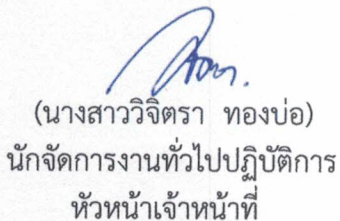 (นางสาววิจิตรา ทองบ่อ)
นักจัดการงานทั่วไปปฏิบัติการ
หัวหน้าเจ้าหน้าที่